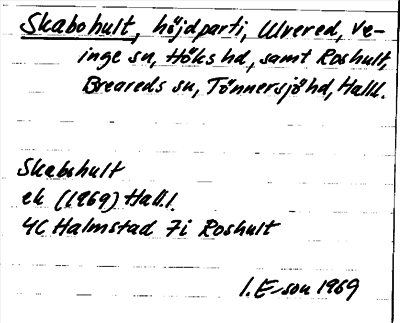 Skabohult, höjdparti, Ulvered, Ve-
inge sn, Höks hd, samt Roshult,
Breareds sn, Tönnersjö hd, Hall.
Skabohult
ek (1969) Hall.
4C Halmstad 7i Roshult
I. E-son 1969